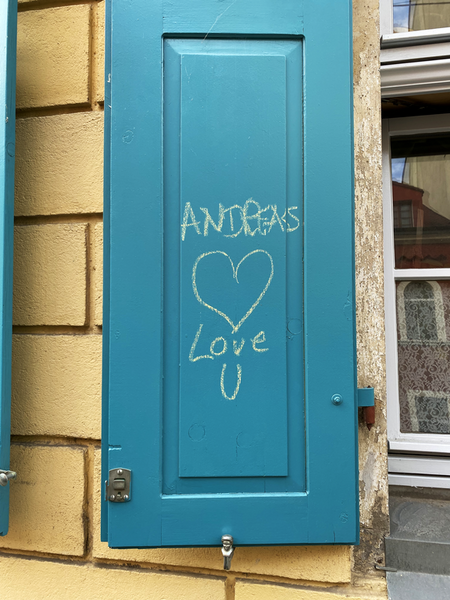 ANDREAS
Love
U